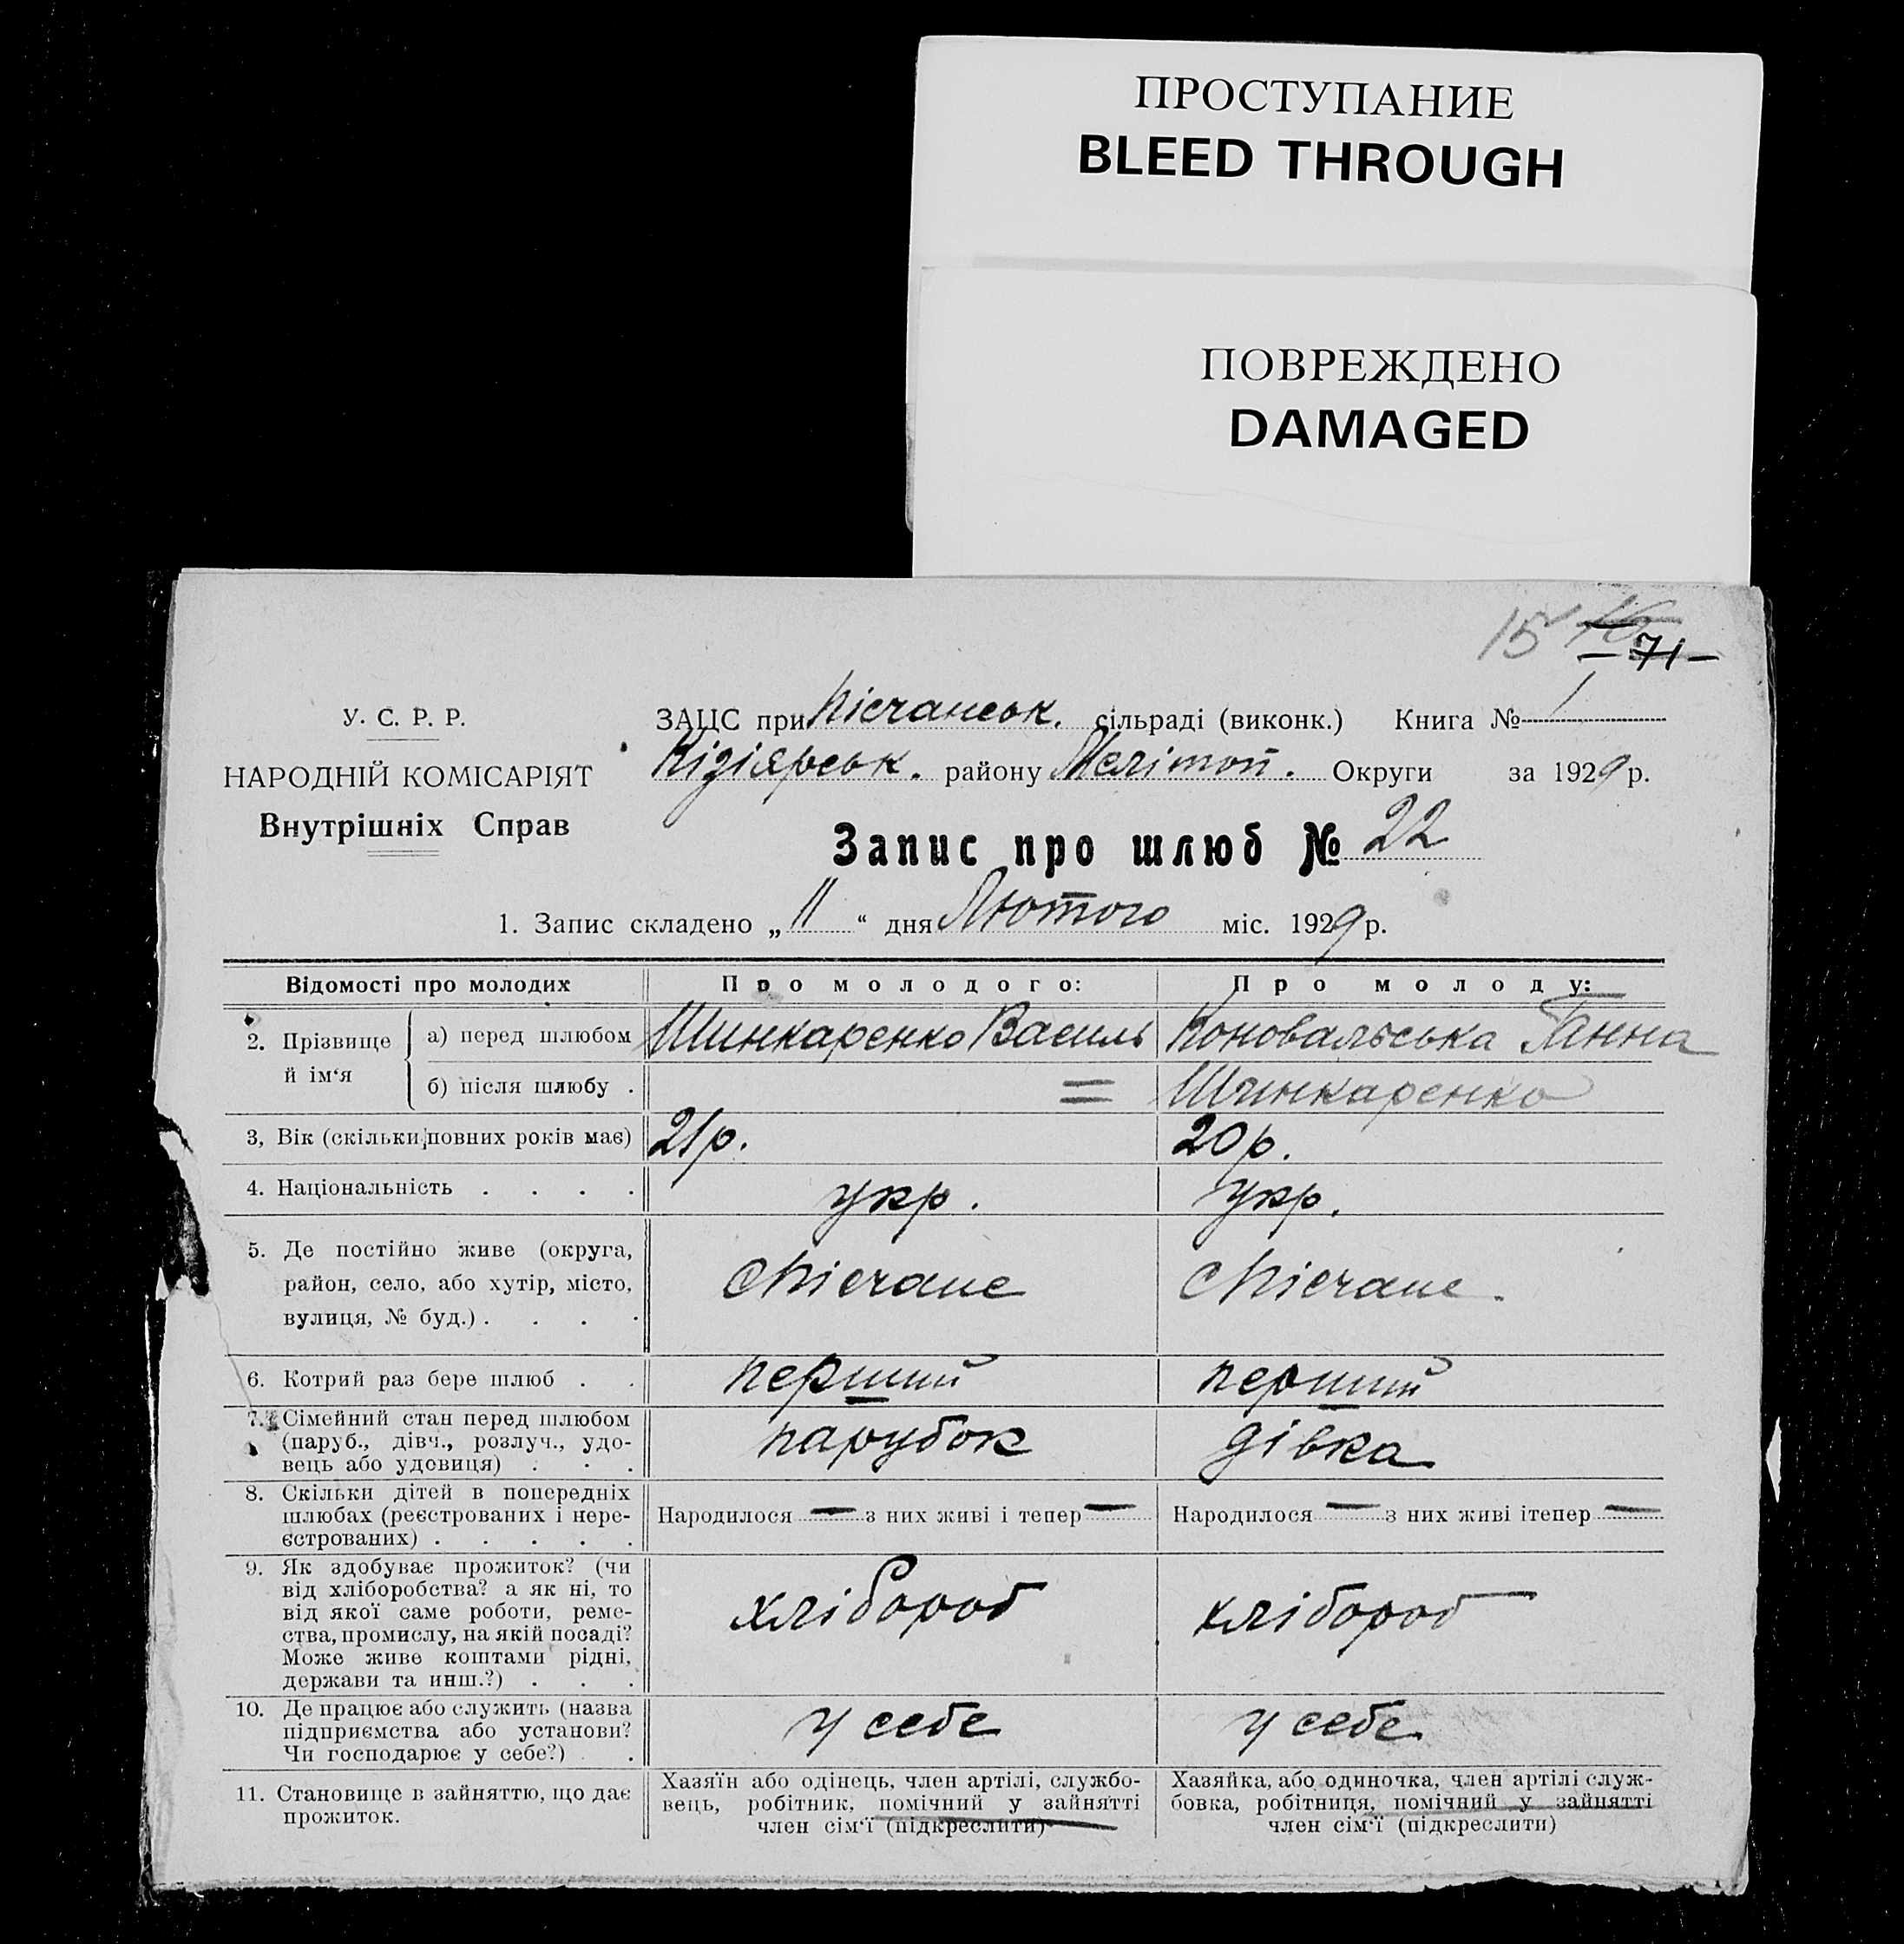 ПРОСТУПАНИЕ
BLEED THROUGH
ПОВРЕЖДЕНО
DAMAGED
15
71
У. С. Р. Р.
НАРОДНІЙ КОМІСАРІЯТ
Внутрішніх Справ
ЗАЦС при Пісчанськ. сільраді (виконк.) Книга № 1
Кізіярськ. району Мелітоп. Округи за 1929 р.
Запис про шлюб № 22
1. Запис складено „11“ дня Лютого міс. 1929 р.
Відомості про молодих
Про молодого:
Про молоду:
2. Прізвище й ім‘я
а) перед шлюбом
Шинкаренко Василь
Коновальська Ганна
б) після шлюбу .
=
Шинкаренко
3, Вік (скільки повних років має)
21 р.
20 р.
4. Національність . . . .
укр.
укр.
5. Де постійно живе (округа,
район, село, або хутір, місто,
вулиця, № буд.) . . . .
с Пісчане
с Пісчане.
6. Котрий раз бере шлюб . .
перший
перший
7. Сімейний стан перед шлюбом
(паруб., дівч., розлуч., удо-
вець або удовиця) . . .
парубок
дівка
8. Скільки дітей в попередніх
шлюбах (реєстрованих і нере-
єстрованих) . . . . .
Народилося — з них живі і тепер —
Народилося — з них живі ітепер —
9. Як здобуває прожиток? (чи
від хліборобства? а як ні, то
від якої саме роботи, реме-
ства, промислу, на якій посаді?
Може живе коштами рідні,
держави та инш.?) . . .
хлібороб
хлібороб
10. Де працює або служить (назва
підприємства або установи?
Чи господарює у себе?) .
у себе
у себе
11. Становище в зайняттю, що дає
прожиток.
Хазяїн або одінець, член артілі, службо-
вець, робітник, помічний у зайнятті
член сім‘ї (підкреслити)
Хазяйка, або одиночка, член артілі служ-
бовка, робітниця, помічний у зайнятті
член сім‘ї (підкреслити)